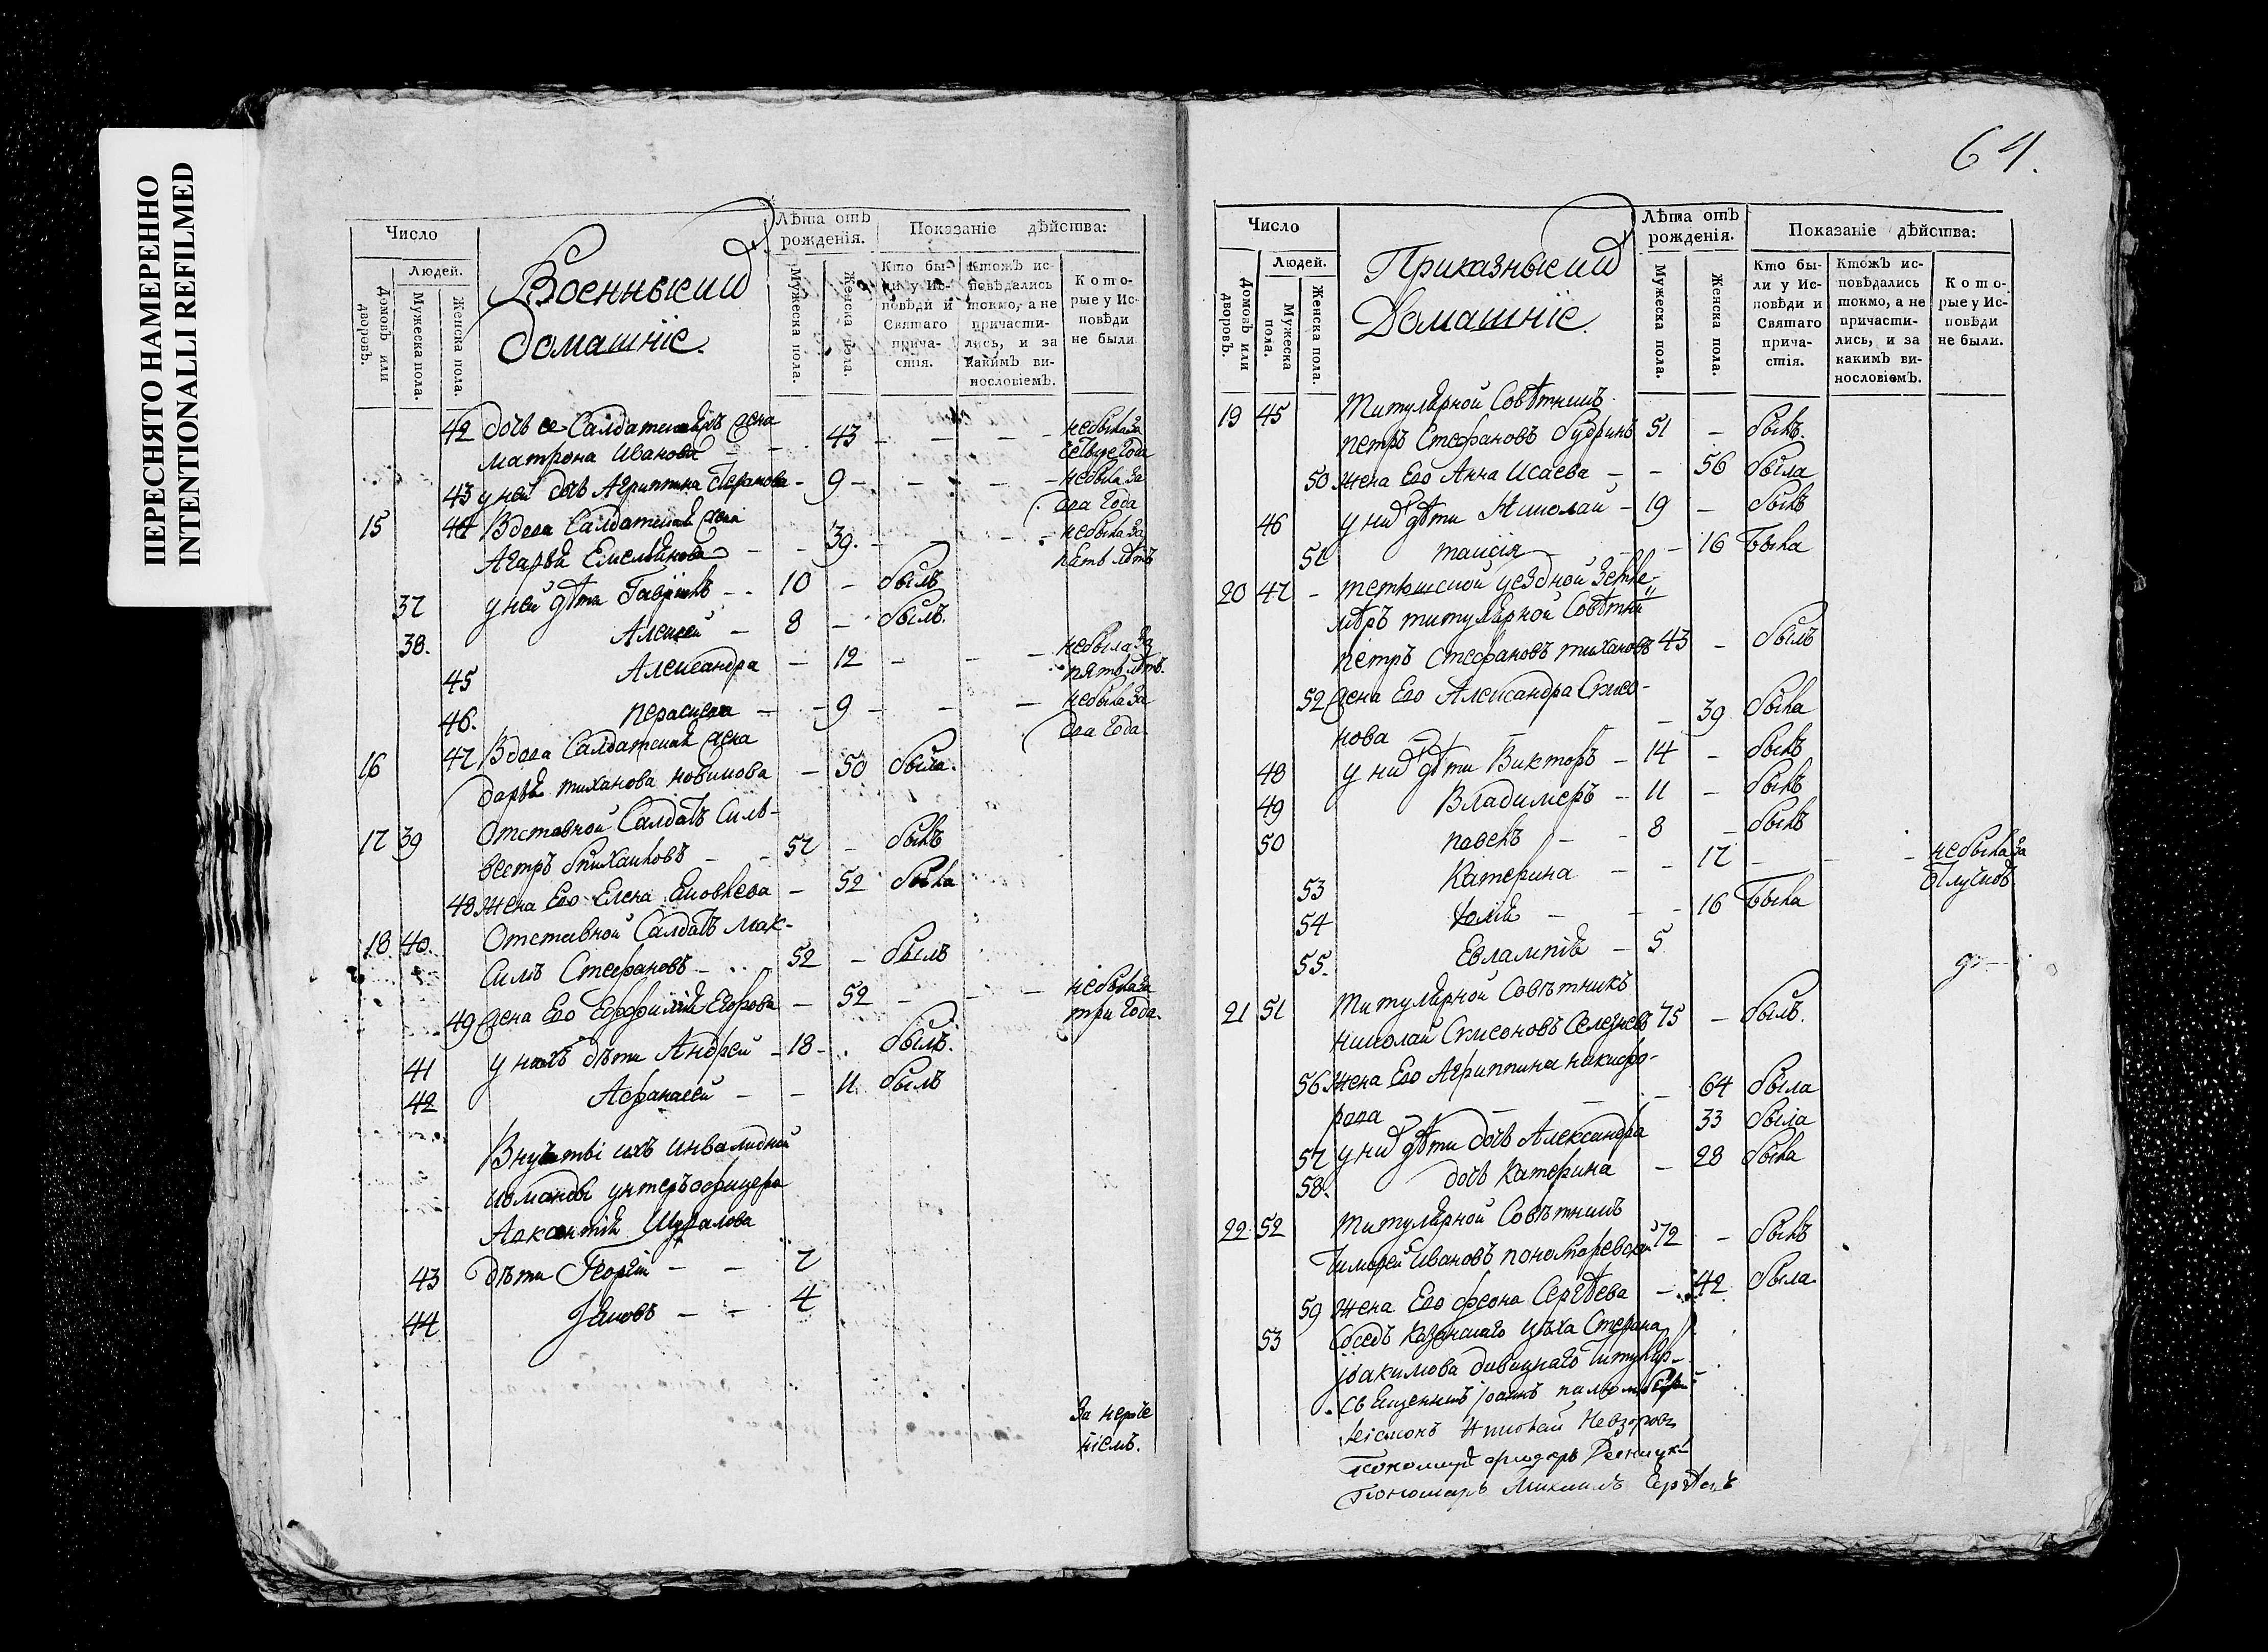 ПЕРЕСНЯТО НАМЕРЕННО
INTENTIONALLI REFILMED
Число
Людей.
Домовъ или дворовъ.
Мужеска пола.
Женска пола.
Военные и
домашніе.
Лѣта отъ рожденія.
Мужеска пола.
Женска пола.
Показаніе дѣйства:
Кто бы-
ли у Ис-
повѣди и
Святаго
прича-
стія.
Ктожъ ис-
повѣдались
токмо, а не
причасти-
лись, и за
какимъ ви-
нословіемъ.
Кото-
рые у Ис-
повѣди
не были
42 дочь ее Салдатская жена
матрона Иванова - - 43 - - - не была за
года
43 у ней дочь Агриппина - 9 - - - не была за
два года
15 44 Вдова Салдатская жена
Агафья Емельянова - - 39. - - - не была за
пять лѣтъ
37 у ней дѣти Гавріилъ - 10 - былъ
38. Алексей - 8 - былъ.
45 Александра - 12 - - - не была за
пять лѣтъ.
46. параскева - - 9 - - - не была за
два года.
16 47 Вдова Салдатская жена
дарья тиханова новикова - 50 была.
17 39 Отставной Салдатъ Силь-
вестръ - 57 - былъ
48 жена Его Елена Яковлева - 52 была
18 40. Отставной Салдатъ Мак-
симъ Стефановъ - 52 - былъ
49 жена Его Евфимія Егорова - 52 - - - не была за
три года.
41 у нихъ дѣти Андрей - 18 - былъ.
42 Афанасей - - 11 былъ
ихъ инвалидной
команды унтеръ офицера
43 дѣти Георгій - - 7
44 Іаковъ - - 4
За
ніемъ.
61.
Число
Людей.
Домовъ или дворовъ.
Мужеска пола.
Женска пола.
Приказные и
Домашніе.
Лѣта отъ рожденія.
Мужеска пола.
Женска пола.
Показаніе дѣйства:
Кто бы-
ли у Ис-
повѣди и
Святаго
прича-
стія.
Ктожъ ис-
повѣдались
токмо, а не
причасти-
лись, и за
какимъ ви-
нословіемъ.
Кото-
рые у Ис-
повѣди
не были.
19 45 Титулярной Совѣтникъ
петръ Стефановъ Будринъ 51 - былъ.
50 жена Его Анна Исаева - - 56 была
46 у них дѣти Николай - 19 - былъ
51 таисія - - 16 была
20 47 - тетюшской уездной Земле-
мѣръ титулярной Совѣтни
петръ Стефановъ тихановъ 43 - былъ
52 жена Его Александра Симео-
нова - - 39 была
48 у них дѣти Викторъ - 14 - былъ
49 Владимеръ - 11 - былъ
50 павелъ - - 8 - былъ
53 Катерина - - 17 - - - не была за
54 Юлія - - - 16 была
55. Евлампія - 5
21 51 Титулярной Совѣтникъ
николай Симеоновъ Селезневъ 75 - былъ.
56 жена Его Агриппина никифо-
рова - - - 64 была
57 у них дѣти дочь Александра 33 была
58. дочь Катерина - 28 была
22 52 Титулярной Совѣтникъ
Тимофей Ивановъ 72 - былъ
59 жена Его феона Сергѣева - 42 была.
53 Соседъ Казанскаго цѣха Стефана
Іоакимова
Священникъ Іоаннъ
Николай Невзоровъ
Пономарь